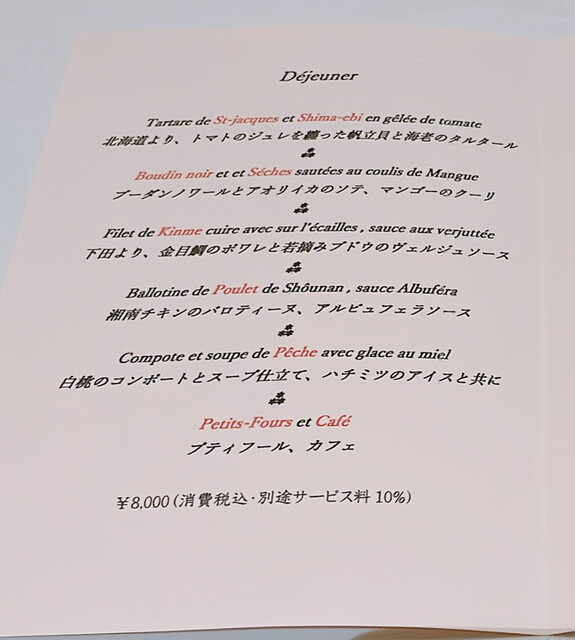 Déjeuner
Tartare de St-jacques et Shima-ebi en gêlée de tomate
北海道より、トマトのジュレを纏った帆立貝と海老のタルタール
Boudin noir et et Séches sautées au coulis de Mangue
ブーダンノワールとアオリイカのソテ、マンゴーのクーリ
Filet de Kinme cuire avec sur l'écailles , sauce aux verjuttée
下田より、金目鯛のポワレと若摘みブドウのヴェルジュソース
Ballotine de Poulet de Shôunan , sauce Albuféra
湘南チキンのバロティーヌ、アルビュフェラソース
Compote et soupe de Pêche avec glace au miel
白桃のコンポートとスープ仕立て、ハチミツのアイスと共に
Petits-Fours et Café
プティフール、カフェ
￥8,000 (消費税込・別途サービス料 10%)